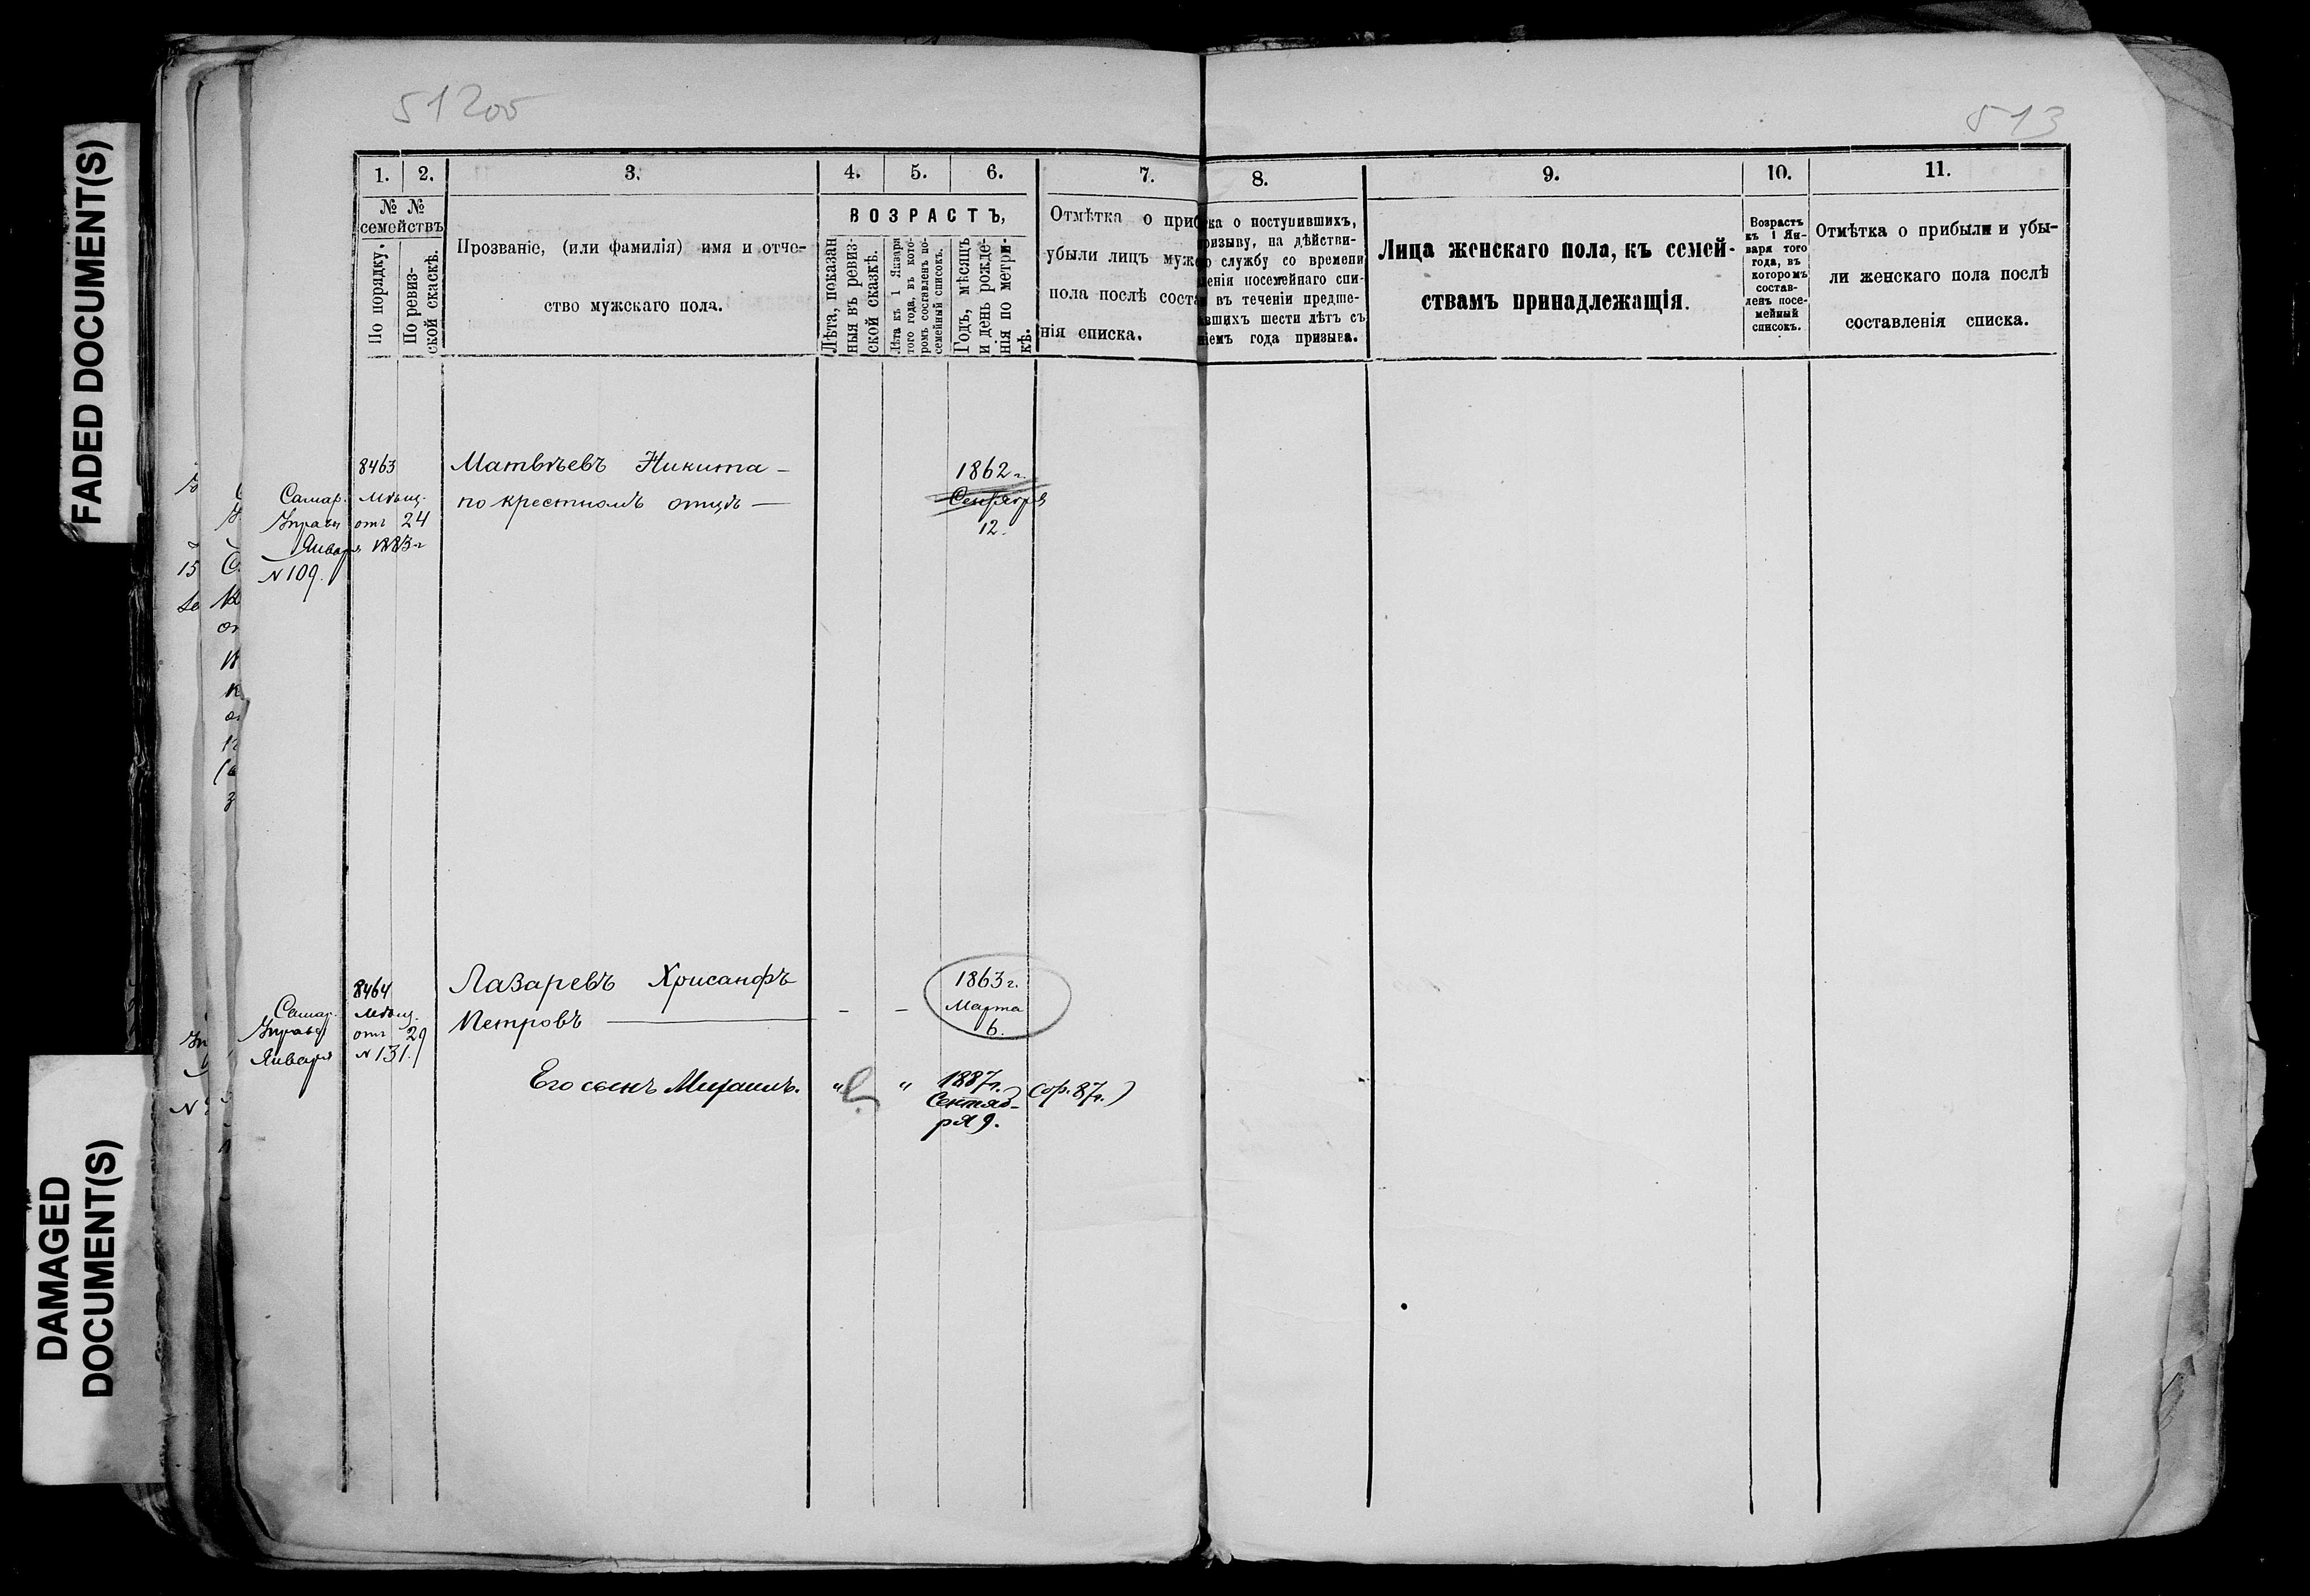 FADED DOCUMENT(S)
DAMAGED
DOCUMENT(S)
513
1. 2. 3. 4. 5. 6. 7. 8. 9. 10. 11.
№ №
семействъ
По порядку.
По ревиз-
ской скаскѣ.
Прозваніе, (или фамилія) имя и отче-
ство мужскаго пола.
ВОЗРАСТЪ,
Лѣта, показан
ныя въ ревиз-
ской сказкѣ.
Лѣта къ 1 Января
того года, въ кото-
ромъ составленъ по-
семейный списокъ.
Годъ, мѣсяцъ
и день рожде-
нія по метри-
кѣ.
Отмѣтка о приб
убыли лицъ муж
пола послѣ соста
нія списка.
ка о поступившихъ,
ризыву, на дѣйстви-
службу со времени
ленія посемейнаго спи-
въ теченіи предше-
вшихъ шести лѣтъ съ
іемъ года призыва.
Лица женскаго пола, къ семей-
ствамъ принадлежащія.
Возрастъ
къ 1 Ян-
варя того
года, въ
которомъ
состав-
ленъ посе-
мейный
списокъ.
Отмѣтка о прибыли и убы-
ли женскаго пола послѣ
составленія списка.
8463 Матвѣевъ Никита — 1862 г.
Самар. Мѣщ. по крестномъ отцѣ — Сентября
Управы отъ 24 12.
Января 1883 г
N 109.
8464 Лазаревъ Хрисанфъ 1863 г.
Самар. Мѣщ. Петровъ — – – Марта
Управы отъ 29 6.
Января N 131.
Его сынъ Михаилъ. " " 1887 г. (ор. 87 г.)
Сентяб-
ря 9.